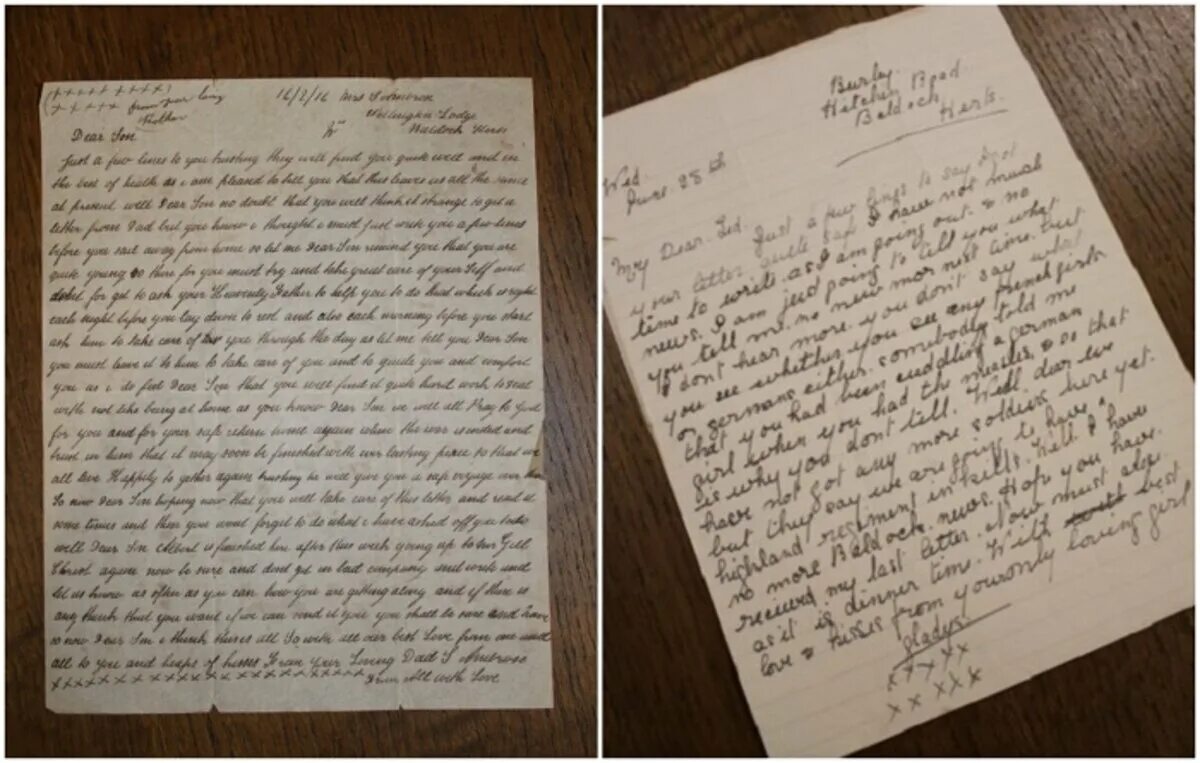 (x x x x x x x x)
x x x x x from your loving
Mother
16/2/16 Mrs S Ambrose
Lodge
Baldock Herts
Dear Son
Just a few lines to you trusting they will find you quite well and in
the best of health as i am pleased to tell you that this leaves us all the same
at present well Dear Son no doubt that you will think it strange to get a
letter from Dad but you know i thought i must just write you a few lines
before you sail away from home so let me Dear Son remind you that you are
quite young so there for you must try and take great care of your Self and
dont for get to ask your Heavenly Father to help you to do that which is right
each night before you lay down to rest and also each morning before you start
ask him to take care of you through the day as let me tell you Dear Son
you must leave it to him to take care of you and to guide you and comfort
you as i do feel Dear Son that you will find it quite hard work to
not like being at home as you know Dear Son we will all Pray to God
for you and for your safe return home again when the war is ended and
trust in him that it may soon be finished with ever lasting peace so that we
all live Happily to gether again trusting he will give you a safe voyage over
So now Dear Son hoping now that you will take care of this letter and read it
some times and then you wont forget to do what i have asked off you
well Dear Son Albert is finished here after this week going up to Gill
Christ again now be sure and dont get in bad company and write and
let us know as often as you can how you are getting along and if there is
any think that you want if we can send it you you shall be sure and have
so now Dear Son i think this is all So with all our best Love from one and
all to you and heaps of kisses From your Loving Dad S Ambrose
x x x x x x x x x x x x x x x x x x x x x From All with Love
Burley
Hitchen Road
Baldock
Herts.
Wed.
June 28th
My Dear Sid. Just a few lines to say I got
your letter quite safe I have not much
time to write as I am going out & no
news. I am just going to tell you what
you tell me. no news mor nist time. but
I dont hear more. you don't say what
you see whither you see any french girls
or germans either. somebody told me
that you had been cuddling a german
girl when you had the measles, & so that
is why you dont tell. Well dear we
have not got any more soldiers here yet.
but they say we are going to have a
highland regiment in kilts. Well I have
no more Baldock news. Hope you have
received my last letter. Now must close
as it is dinner time. With best
love & kisses from your only loving girl
Gladys.
x x x x x
x x x x x